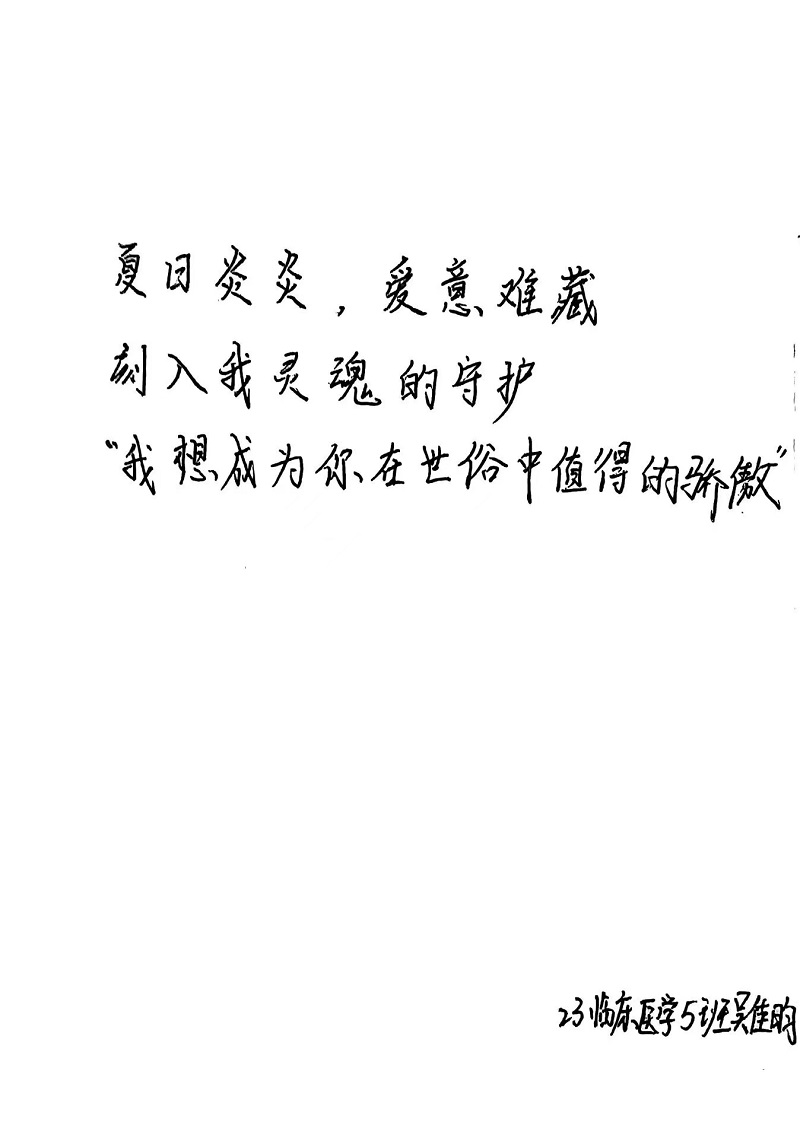 夏日炎炎，爱意难藏
刻入我灵魂的守护
“我想成为你在世俗中值得的骄傲”
23临床医学5班吴佳昀